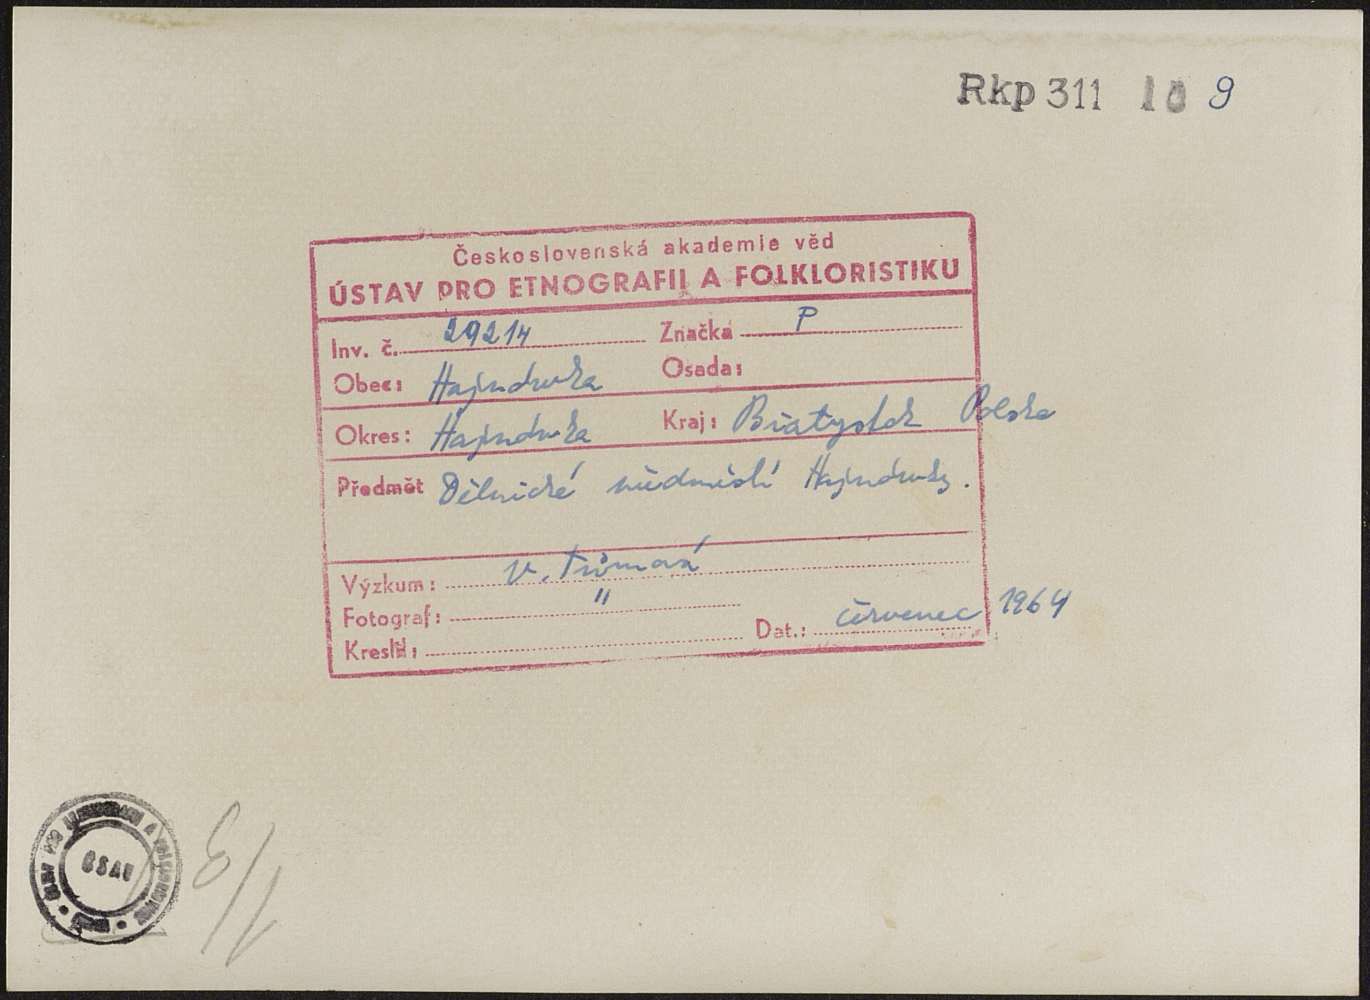 Rkp 311 10 9
Československá akademie věd
ÚSTAV PRO ETNOGRAFII A FOLKLORISTIKU
Inv. č. 29214 Značka P
Obec: Hajnóvka Osada:
Okres: Hajnóvka Kraj: Białystok Polsko
Předmět Dělnické
V. Tůmová
Výzkum:
Fotograf: "
Kreslil: Dat.: červenec 1964
ČSAV